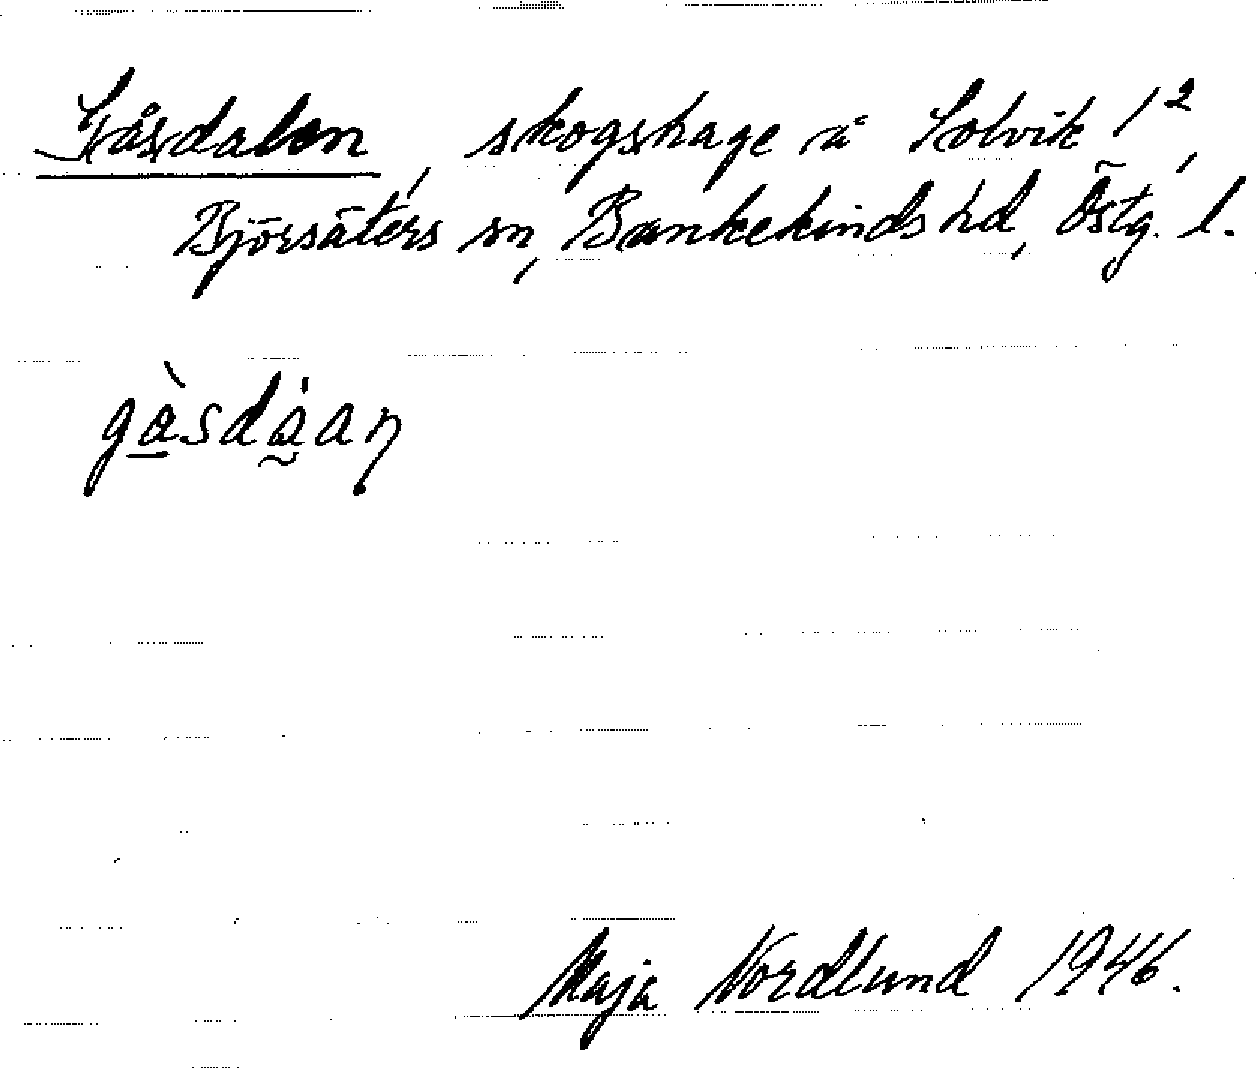 Gåsdalen, skogshage å Solvik 1²,
Björsäters sn, Bankekinds hd, Östg. l.
gàsdáan
Maja Nordlund 1946.